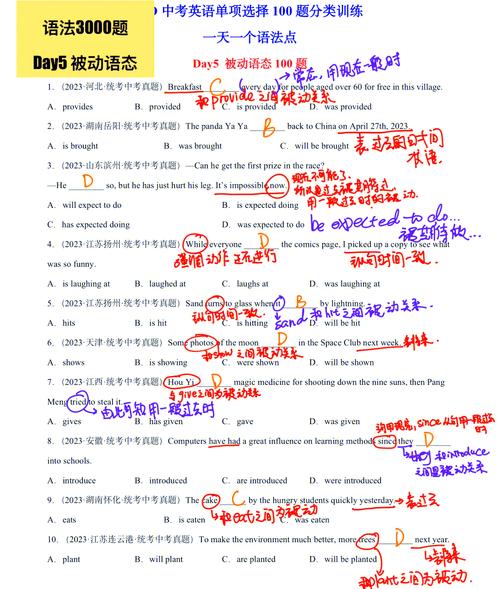 语法3000题
Day5 被动语态
中考英语单项选择 100 题分类训练
一天一个语法点
Day5 被动语态 100 题
常态, 用现在一般时
1.（2023·河北·统考中考真题）Breakfast C (every day) for people aged over 60 for free in this village.
和provide之间被动关系
A．provides B．provided C．is provided D．was provided
2.（2023·湖南岳阳·统考中考真题）The panda Ya Ya B back to China on April 27th, 2023.
A．is brought B．was brought C．will be brought
3.（2023·山东滨州·统考中考真题）—Can he get the first prize in the race?
—He D so, but he has just hurt his leg. It's impossible now.
A．will expect to do B．is expected doing
用一般过去时的被动.
C．has expected doing D．was expected to do
be expected to do...
被期待做...
4.（2023·江苏扬州·统考中考真题）While everyone D the comics page, I picked up a copy to see what
强调动作正在进行
从句时间一致.
was so funny.
A．is laughing at B．laughed at C．laughs at D．was laughing at
5.（2023·江苏扬州·统考中考真题）Sand turns to glass when it B by lightning.
sand 和hit之间被动关系.
A．hits B．is hit C．is hitting D．will be hit
6.（2023·天津·统考中考真题）Some photos of the moon D in the Space Club next week.
将来
和show之间被动关系
A．shows B．is showing C．were shown D．will be shown
7.（2023·江西·统考中考真题）Hou Yi D magic medicine for shooting down the nine suns, then Pang
与give之间为被动关系
Meng tried to steal it.
由此可知用一般过去时
A．gives B．has given C．gave D．was given
8.（2023·安徽·统考中考真题）Computers have had a great influence on learning methods since they D
they 和introduce
之间是被动关系
into schools.
A．introduce B．introduced C．are introduced D．were introduced
9.（2023·湖南怀化·统考中考真题）The cake C by the hungry students quickly yesterday.
表过去
和eat之间为被动
A．eats B．is eaten C．was eaten
10.（2023·江苏连云港·统考中考真题）To make the environment much better, more trees D next year.
将来
A．plant B．will plant C．are planted D．will be planted
和plant之间为被动.